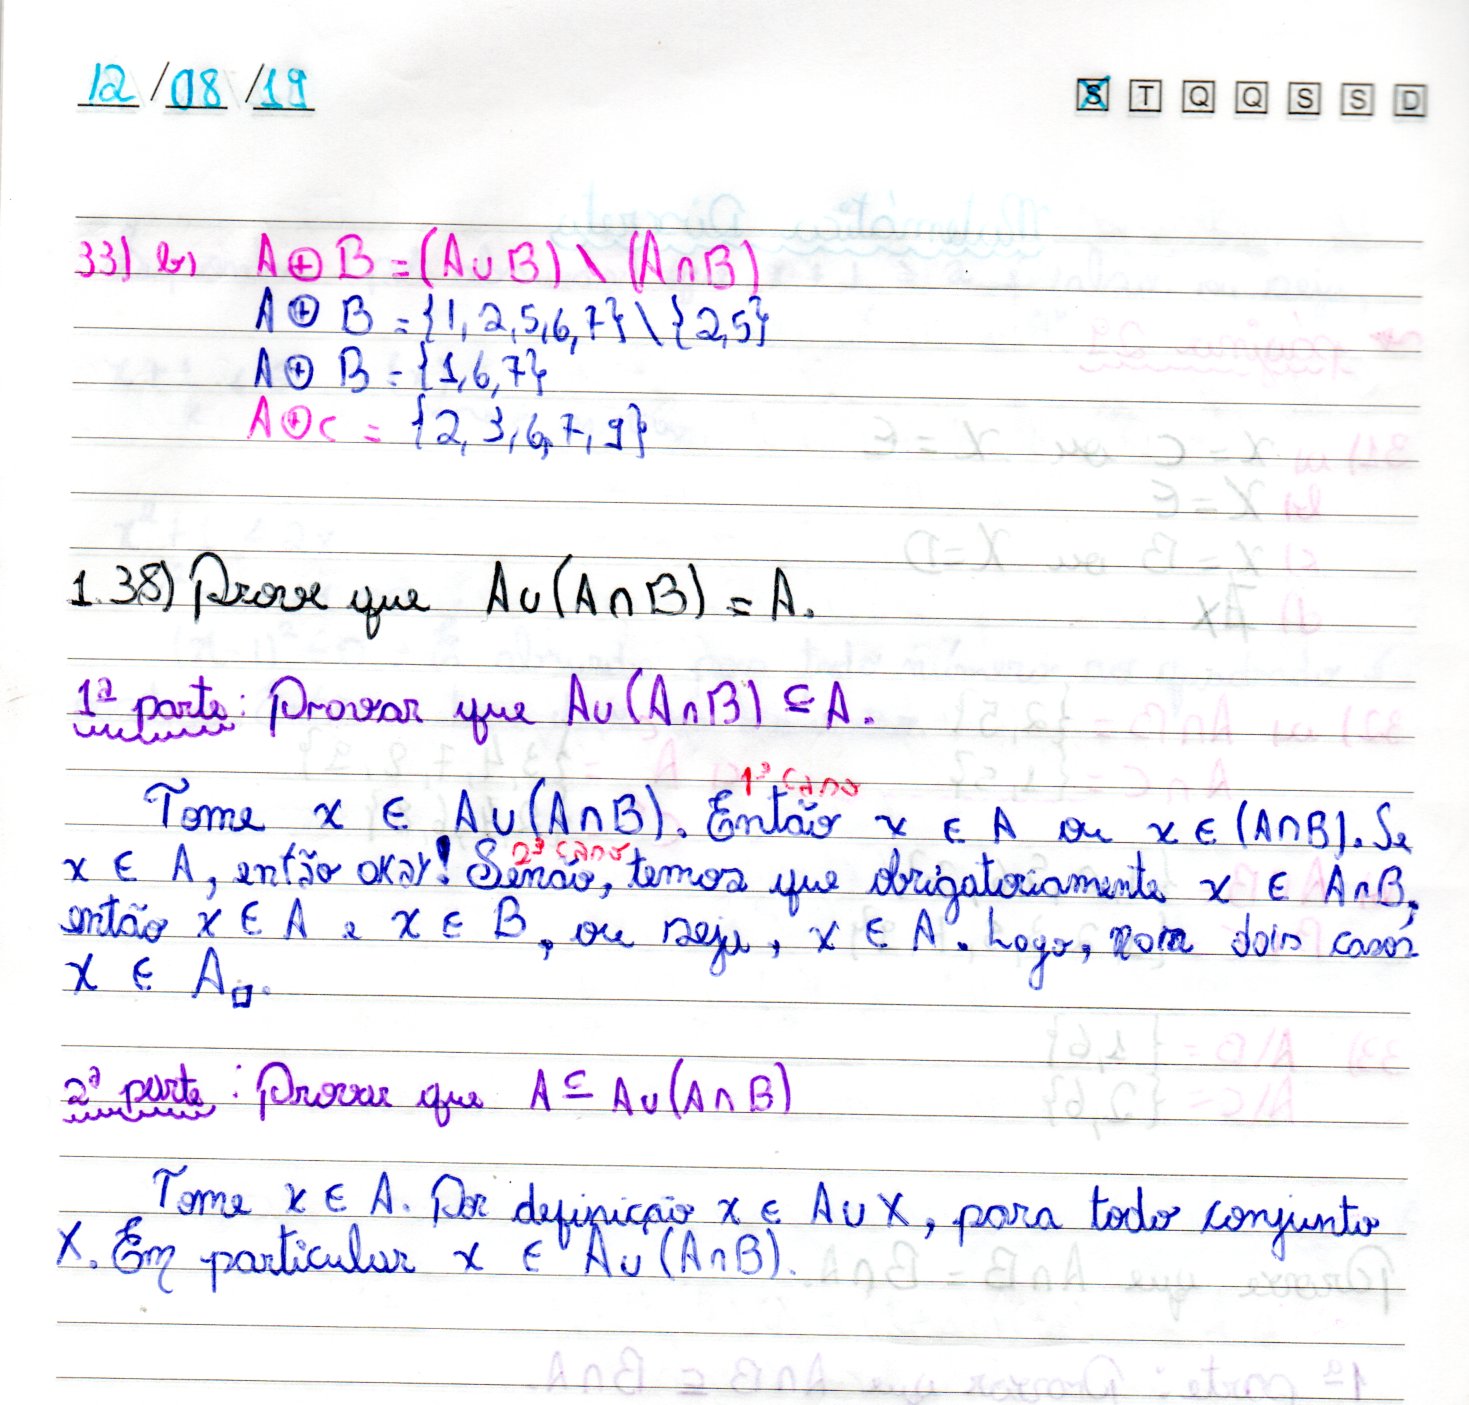 12/08/19
S T Q Q S S D
33) b) A⊕B=(A∪B)\(A∩B)
A⊕B={1,2,5,6,7}\{2,5}
A⊕B={1,6,7}
A⊕C={2,3,6,7,9}
1.38) Prove que A∪(A∩B)=A.
1ª parte: Provar que A∪(A∩B)⊆A.
1º caso
Tome x ∈ A∪(A∩B). Então x ∈ A ou x ∈ (A∩B). Se
2º caso
x ∈ A, então okay! Senão, temos que obrigatoriamente x ∈ A∩B,
então x ∈ A e x ∈ B, ou seja, x ∈ A. Logo, nos dois casos
x ∈ A□.
2ª parte: Provar que A⊆A∪(A∩B)
Tome x ∈ A. Por definição x ∈ A∪X, para todo conjunto
X. Em particular x ∈ A∪(A∩B).